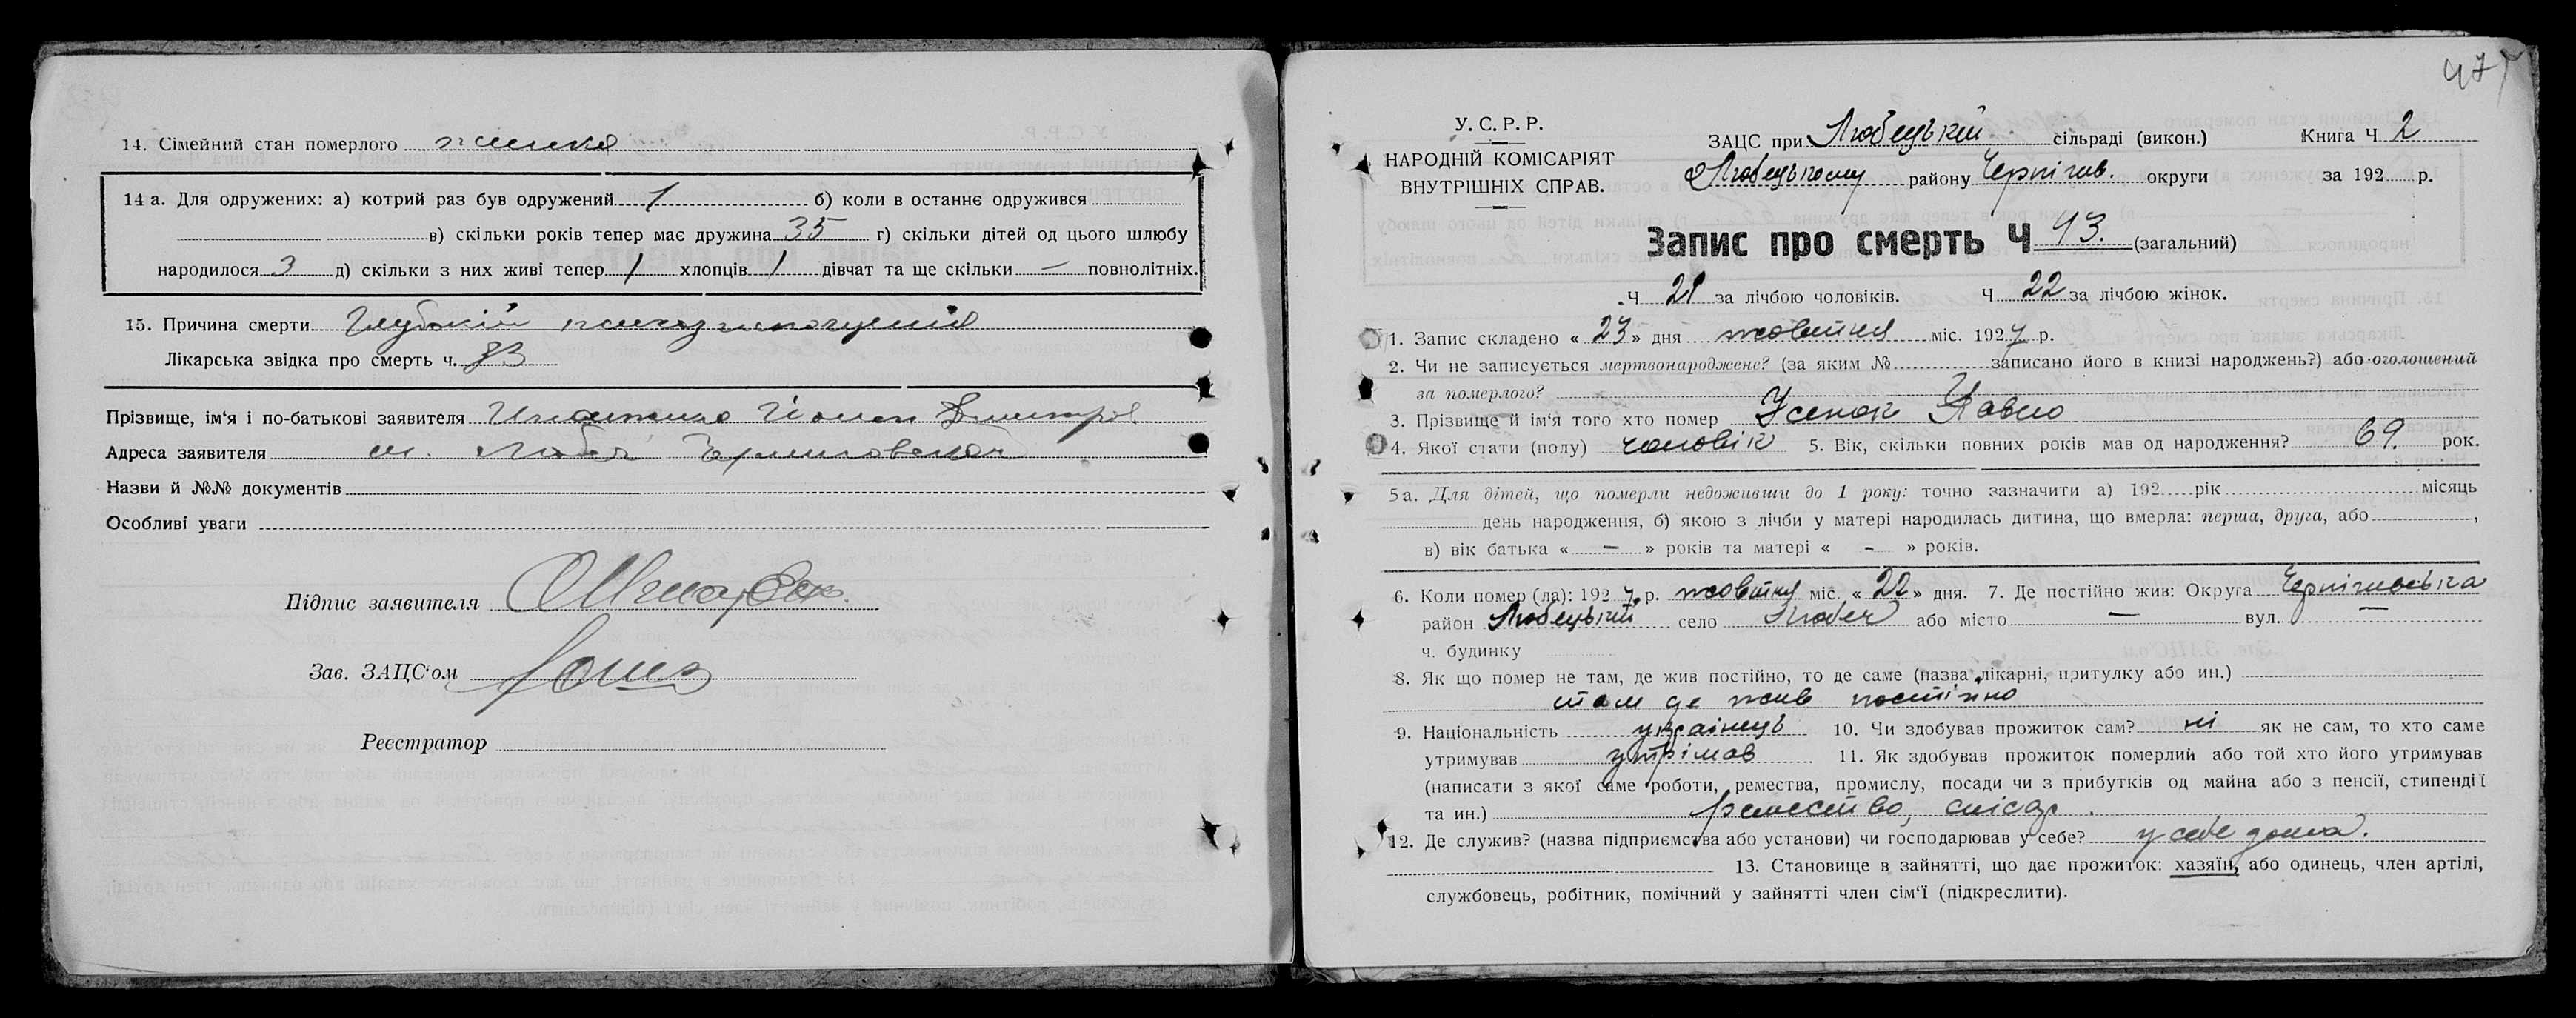 14. Сімейний стан померлого
14 а. Для одружених: а) котрий раз був одружений 1 б) коли в останнє одружився
в) скільки років тепер має дружина 35 г) скільки дітей од цього шлюбу
народилося 3 д) скільки з них живі тепер 1 хлопців 1 дівчат та ще скільки — повнолітніх.
15. Причина смерти
Лікарська звідка про смерть ч. 83
Прізвище, ім'я і по-батькові заявителя
Адреса заявителя м. Любеч
Назви й №№ документів
Особливі уваги
Підпис заявителя
Зав. ЗАЦС'ом
Реєстратор
47
У. С. Р. Р.
НАРОДНІЙ КОМІСАРІЯТ
ВНУТРІШНІХ СПРАВ.
ЗАЦС при Любецькій сільраді (викон.) Книга Ч 2
Любецькому району Чернігів. округи за 192 р.
Запис про смерть Ч 43. (загальний)
Ч 21 за лічбою чоловіків. Ч 22 за лічбою жінок.
1. Запис складено « 23 » дня жовтня міс. 1927 р.
2. Чи не записується мертвонароджене? (за яким № записано його в книзі народжень?) або оголошений
за померлого?
3. Прізвище й ім'я того хто помер Усенок Павло
4. Якої стати (полу) чоловік 5. Вік, скільки повних років мав од народження? 69. рок.
5 а. Для дітей, що померли недоживши до 1 року: точно зазначити а) 192 рік місяць
день народження, б) якою з лічби у матері народилась дитина, що вмерла: перша, друга, або ,
в) вік батька « — » років та матері « - » років.
6. Коли помер (ла): 192 7 р. жовтня міс. « 22 » дня. 7. Де постійно жив: Округа Чернігівська
район Любецький село Любеч або місто — вул. —
ч. будинку
8. Як що помер не там, де жив постійно, то де саме (назва лікарні, притулку або ин.)
там де жив постійно
9. Національність українець 10. Чи здобував прожиток сам? ні як не сам, то хто саме
утримував утрімав 11. Як здобував прожиток померлий або той хто його утримував
(написати з якої саме роботи, ремества, промислу, посади чи з прибутків од майна або з пенсії, стипендії
та ин.) ремество, слісар.
12. Де служив? (назва підприємства або установи) чи господарював у себе? у себе дома.
13. Становище в зайнятті, що дає прожиток: хазяїн, або одинець, член артілі,
службовець, робітник, помічний у зайнятті член сім'ї (підкреслити).